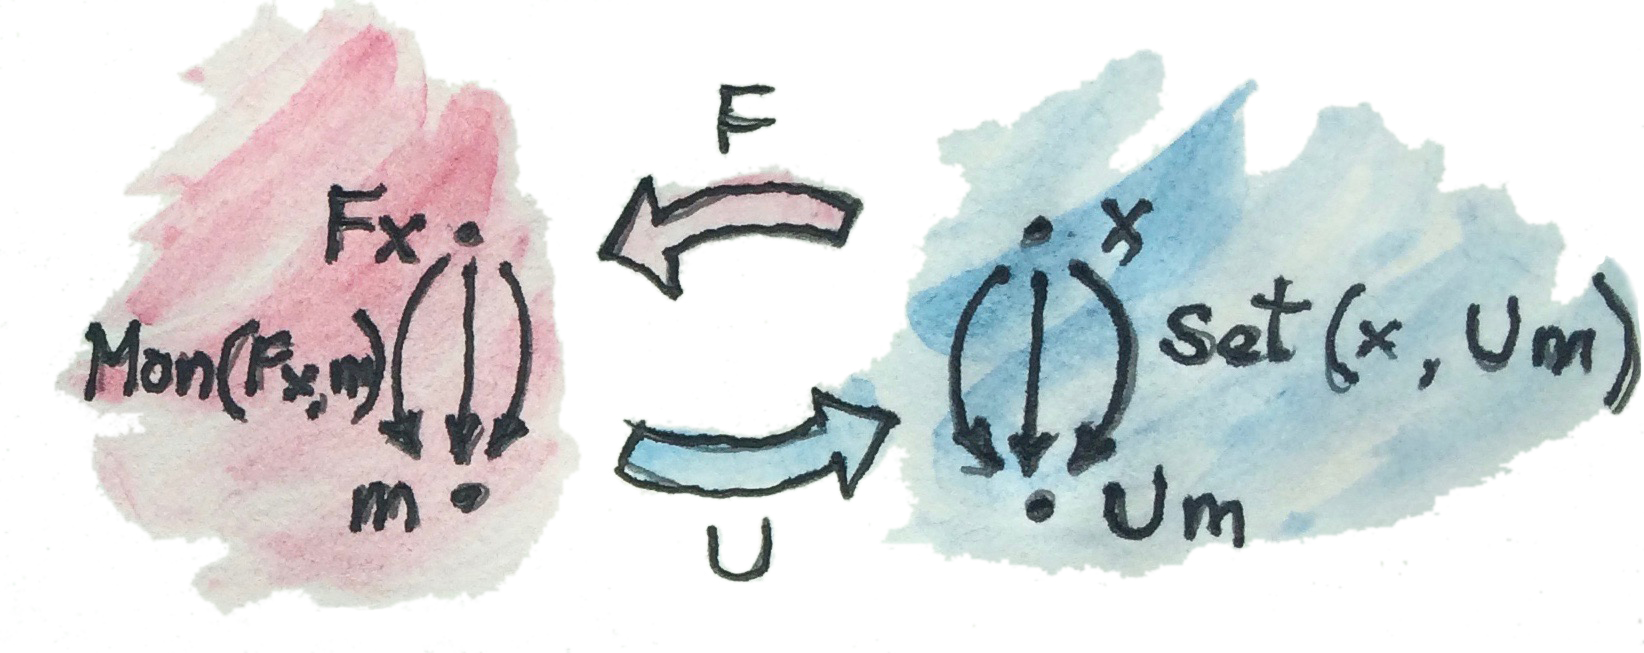 F
Fx
x
Mon(Fx,m)
Set(x, Um)
m
Um
U